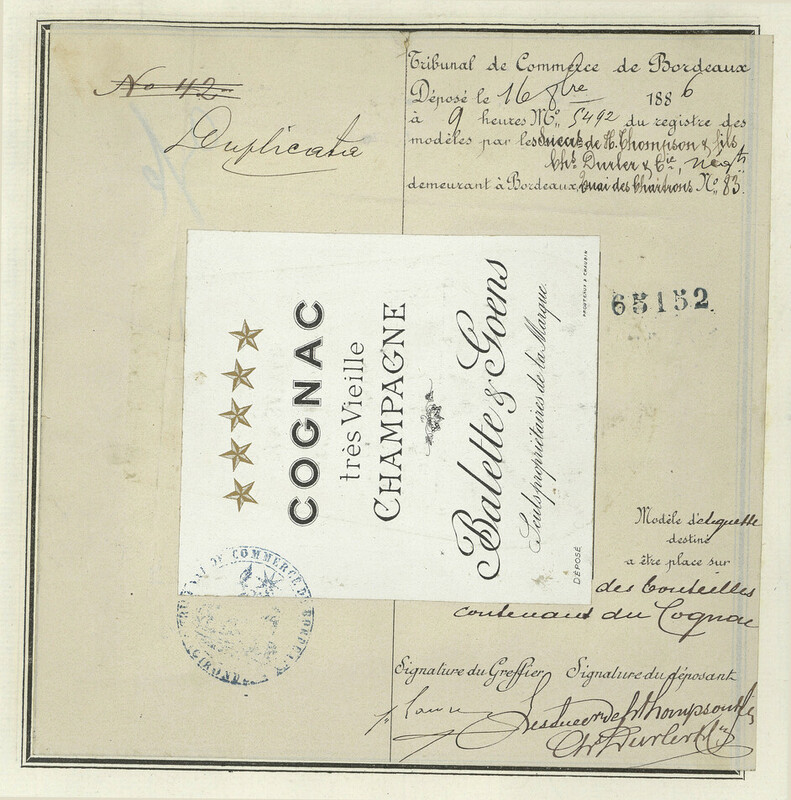 No 42
Duplicata
Tribunal de Commerce de Bordeaux
Déposé le 16 8bre 1886
à 9 heures M. No. 5492 du registre des
modèles par les Succrs de H. Thompson & fils
Chs. Durler & Cie, négts
demeurant à Bordeaux, Quai des Chartrons No. 83.
65152
COGNAC
très Vieille
CHAMPAGNE
Balette & Goens
Seuls propriétaires de la Marque.
DÉPOSÉ
Modèle d'etiquette
destiné
a être place sur
des bouteilles
contenant du Cognac
TRIBUNAL DE COMMERCE DE BORDEAUX
Signature du Greffier Signature du déposant
Les succrs de H Thompson & fils
Chs Durler & Cie